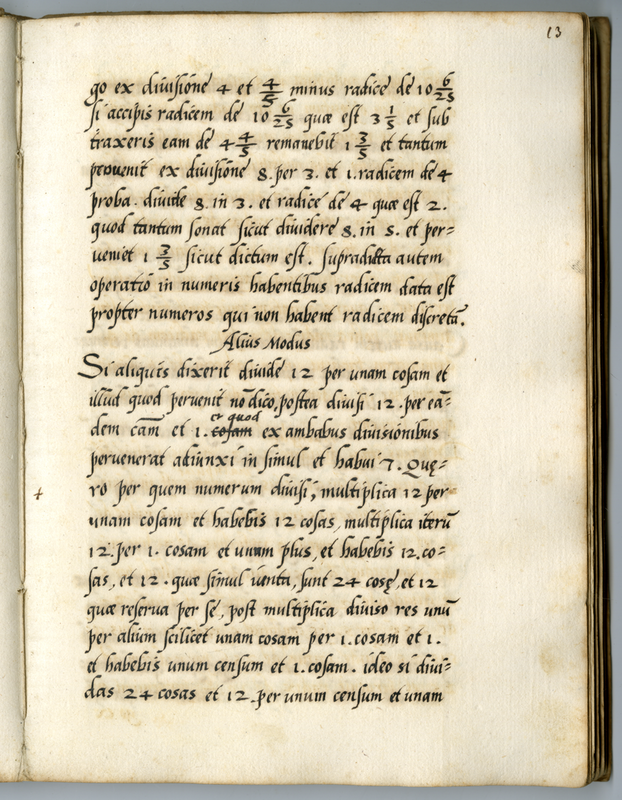 13
go ex diuisione 4 et 4/5 minus radice de 10 6/25
si accipis radicem de 10 6/25 quæ est 3 1/5 et sub
traxeris eam de 4 4/5 remanebit 1 3/5 et tantum
peruenit ex diuisione 8. per 3. et 1. radicem de 4
proba. diuide 8. in 3. et radice de 4 quæ est 2.
quod tantum sonat sicut diuidere 8. in 5. et per=
ueniet 1 3/5 sicut dictum est. supradicta autem
operatio in numeris habentibus radicem data est
propter numeros qui non habent radicem discretã.
Alius Modus
Si aliquis dixerit diuide 12 per unam cosam et
illud quod peruenit nõ dico, postea diuisi 12. per eã=
dem cãm et 1. cosam et quod ex ambabus diuisionibus
peruenerat adiunxi in simul et habui 7. Quę=
ro per quem numerum diuisi, multiplica 12 per
unam cosam et habebis 12 cosas, multiplica iterũ
12. per 1. cosam et unum plus, et habebis 12. co=
sas, et 12. quæ simul iũnta, sunt 24 cosę, et 12
quæ reserua per se, post multiplica diuiso res unũ
per alium scilicet unam cosam per 1. cosam et 1.
et habebis unum censum et 1. cosam. ideo si diui=
das 24 cosas et 12. per unum censum et unam
+